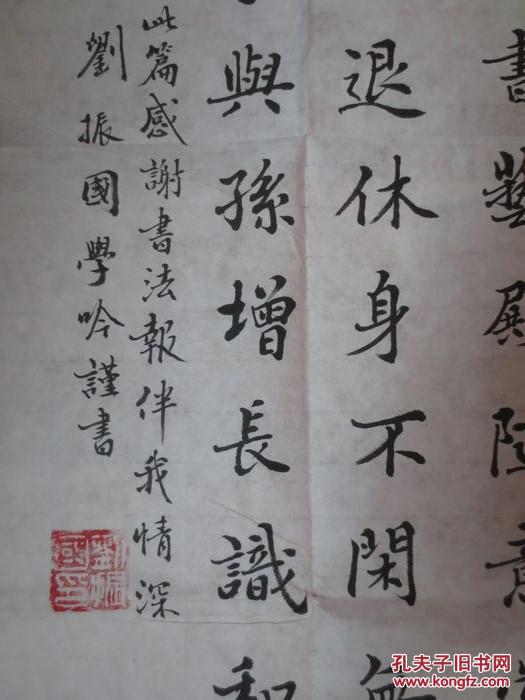 書藝殿陸意
退休身不閑無
與孫增長識和
此篇感謝書法報伴我情深
劉振國學吟謹書
劉振國印
孔夫子旧书网
www.kongfz.com